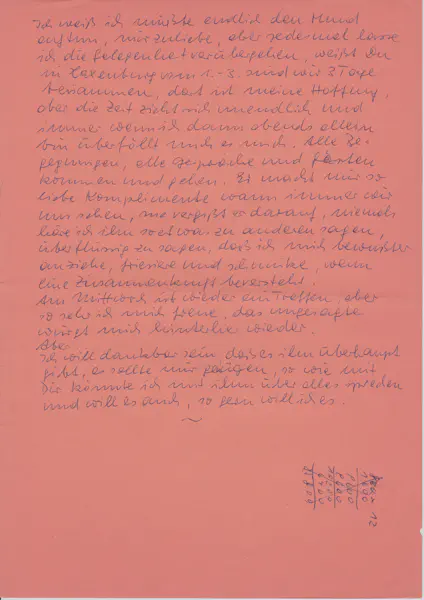 Ich weiß ich müßte endlich den Mund
auftun, mir zuliebe, aber jedesmal lasse
ich die Gelegenheit vorübergehen, weißt Du
in Laxenburg vom 1.-3. sind wir 3 Tage
beisammen, dort ist meine Hoffnung,
aber die Zeit zieht sich unendlich und
immer wenn ich dann abends allein
bin überfällt mich es mich. Alle Be-
gegnungen, alle Gespräche und Gesten
kommen und gehen. Er macht mir so
liebe Komplimente wann immer wir
uns sehen, nie vergißt er darauf, niemals
höre ich ihn so etwas zu anderen sagen,
überflüssig zu sagen, daß ich mich bewußter
anziehe, frisiere und schminke, wenn
eine Zusammenkunft bevorsteht.
Am Mittwoch ist wieder ein Treffen, aber
so sehr ich mich freue, das ungesagte
würgt mich hinterher wieder.
Aber
Ich will dankbar sein, daß es ihn überhaupt
gibt, es sollte mir genügen, so wie mit
Dir könnte ich mit ihm über alles sprechen
und will es auch, so gern will ich es.